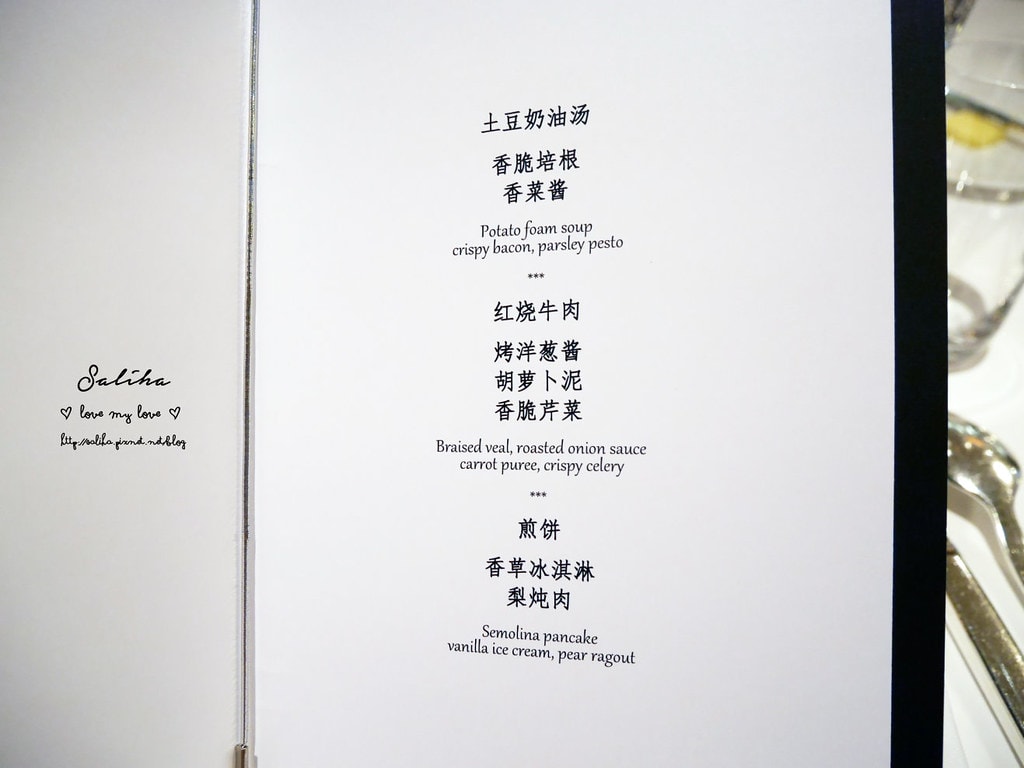 土豆奶油汤
香脆培根
香菜酱
Potato foam soup
crispy bacon, parsley pesto
***
红烧牛肉
烤洋葱酱
胡萝卜泥
香脆芹菜
Braised veal, roasted onion sauce
carrot puree, crispy celery
***
煎饼
香草冰淇淋
梨炖肉
Semolina pancake
vanilla ice cream, pear ragout
Saliha
♡ love my love ♡
http://saliha.pixnet.net/blog